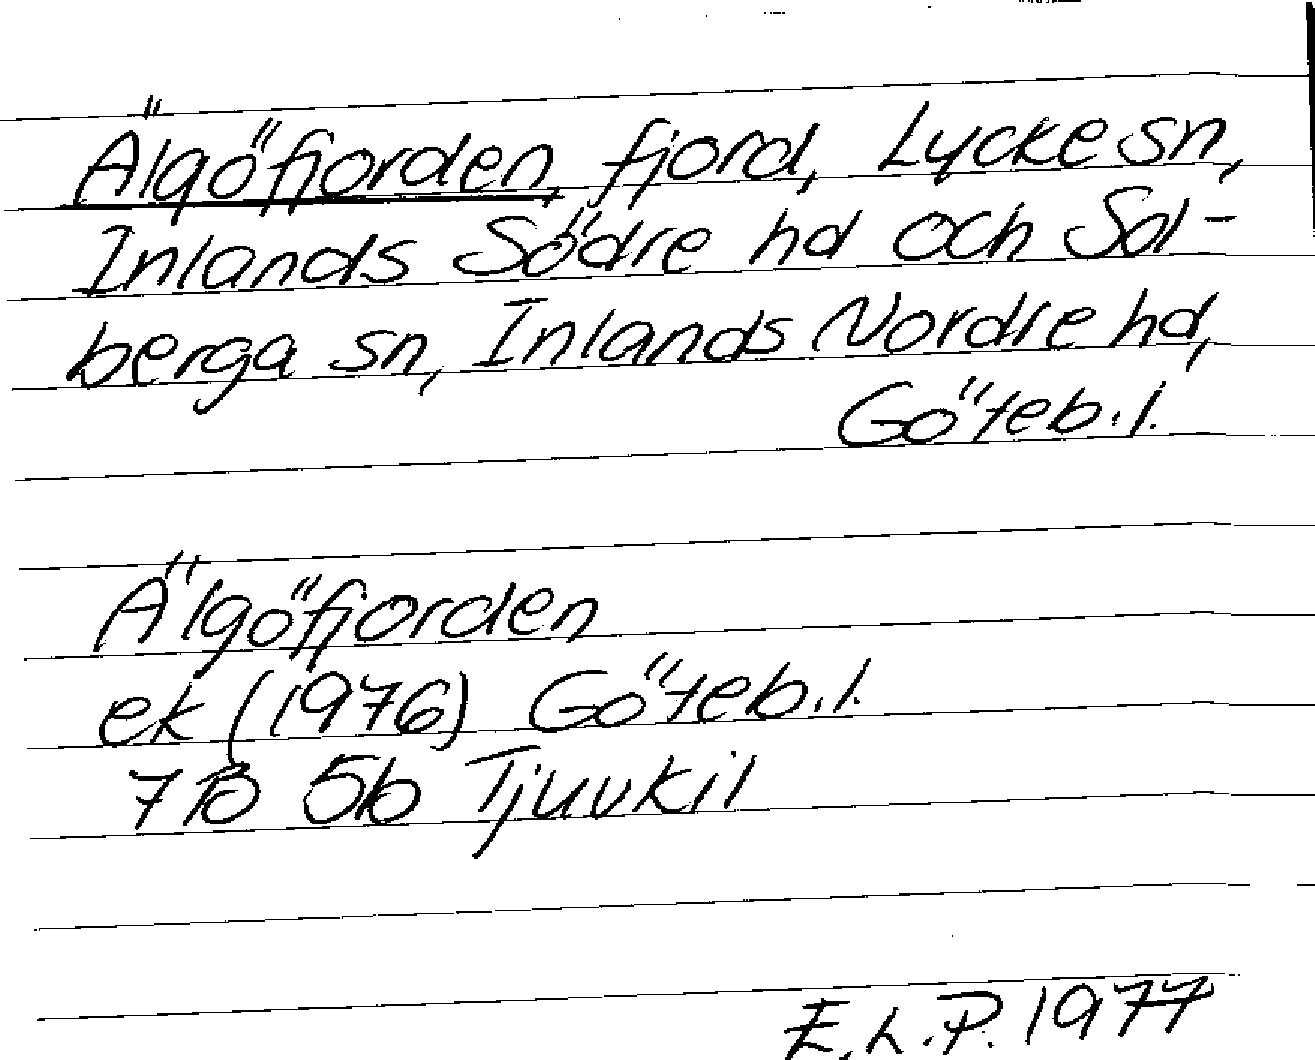 Älgöfjorden, fjord, Lycke sn,
Inlands Södre hd och Sol-
berga sn, Inlands Nordre hd,
Göteb. l.
Älgöfjorden
ek (1976) Göteb. l.
7B 5b Tjuvkil
E. L. P. 1977